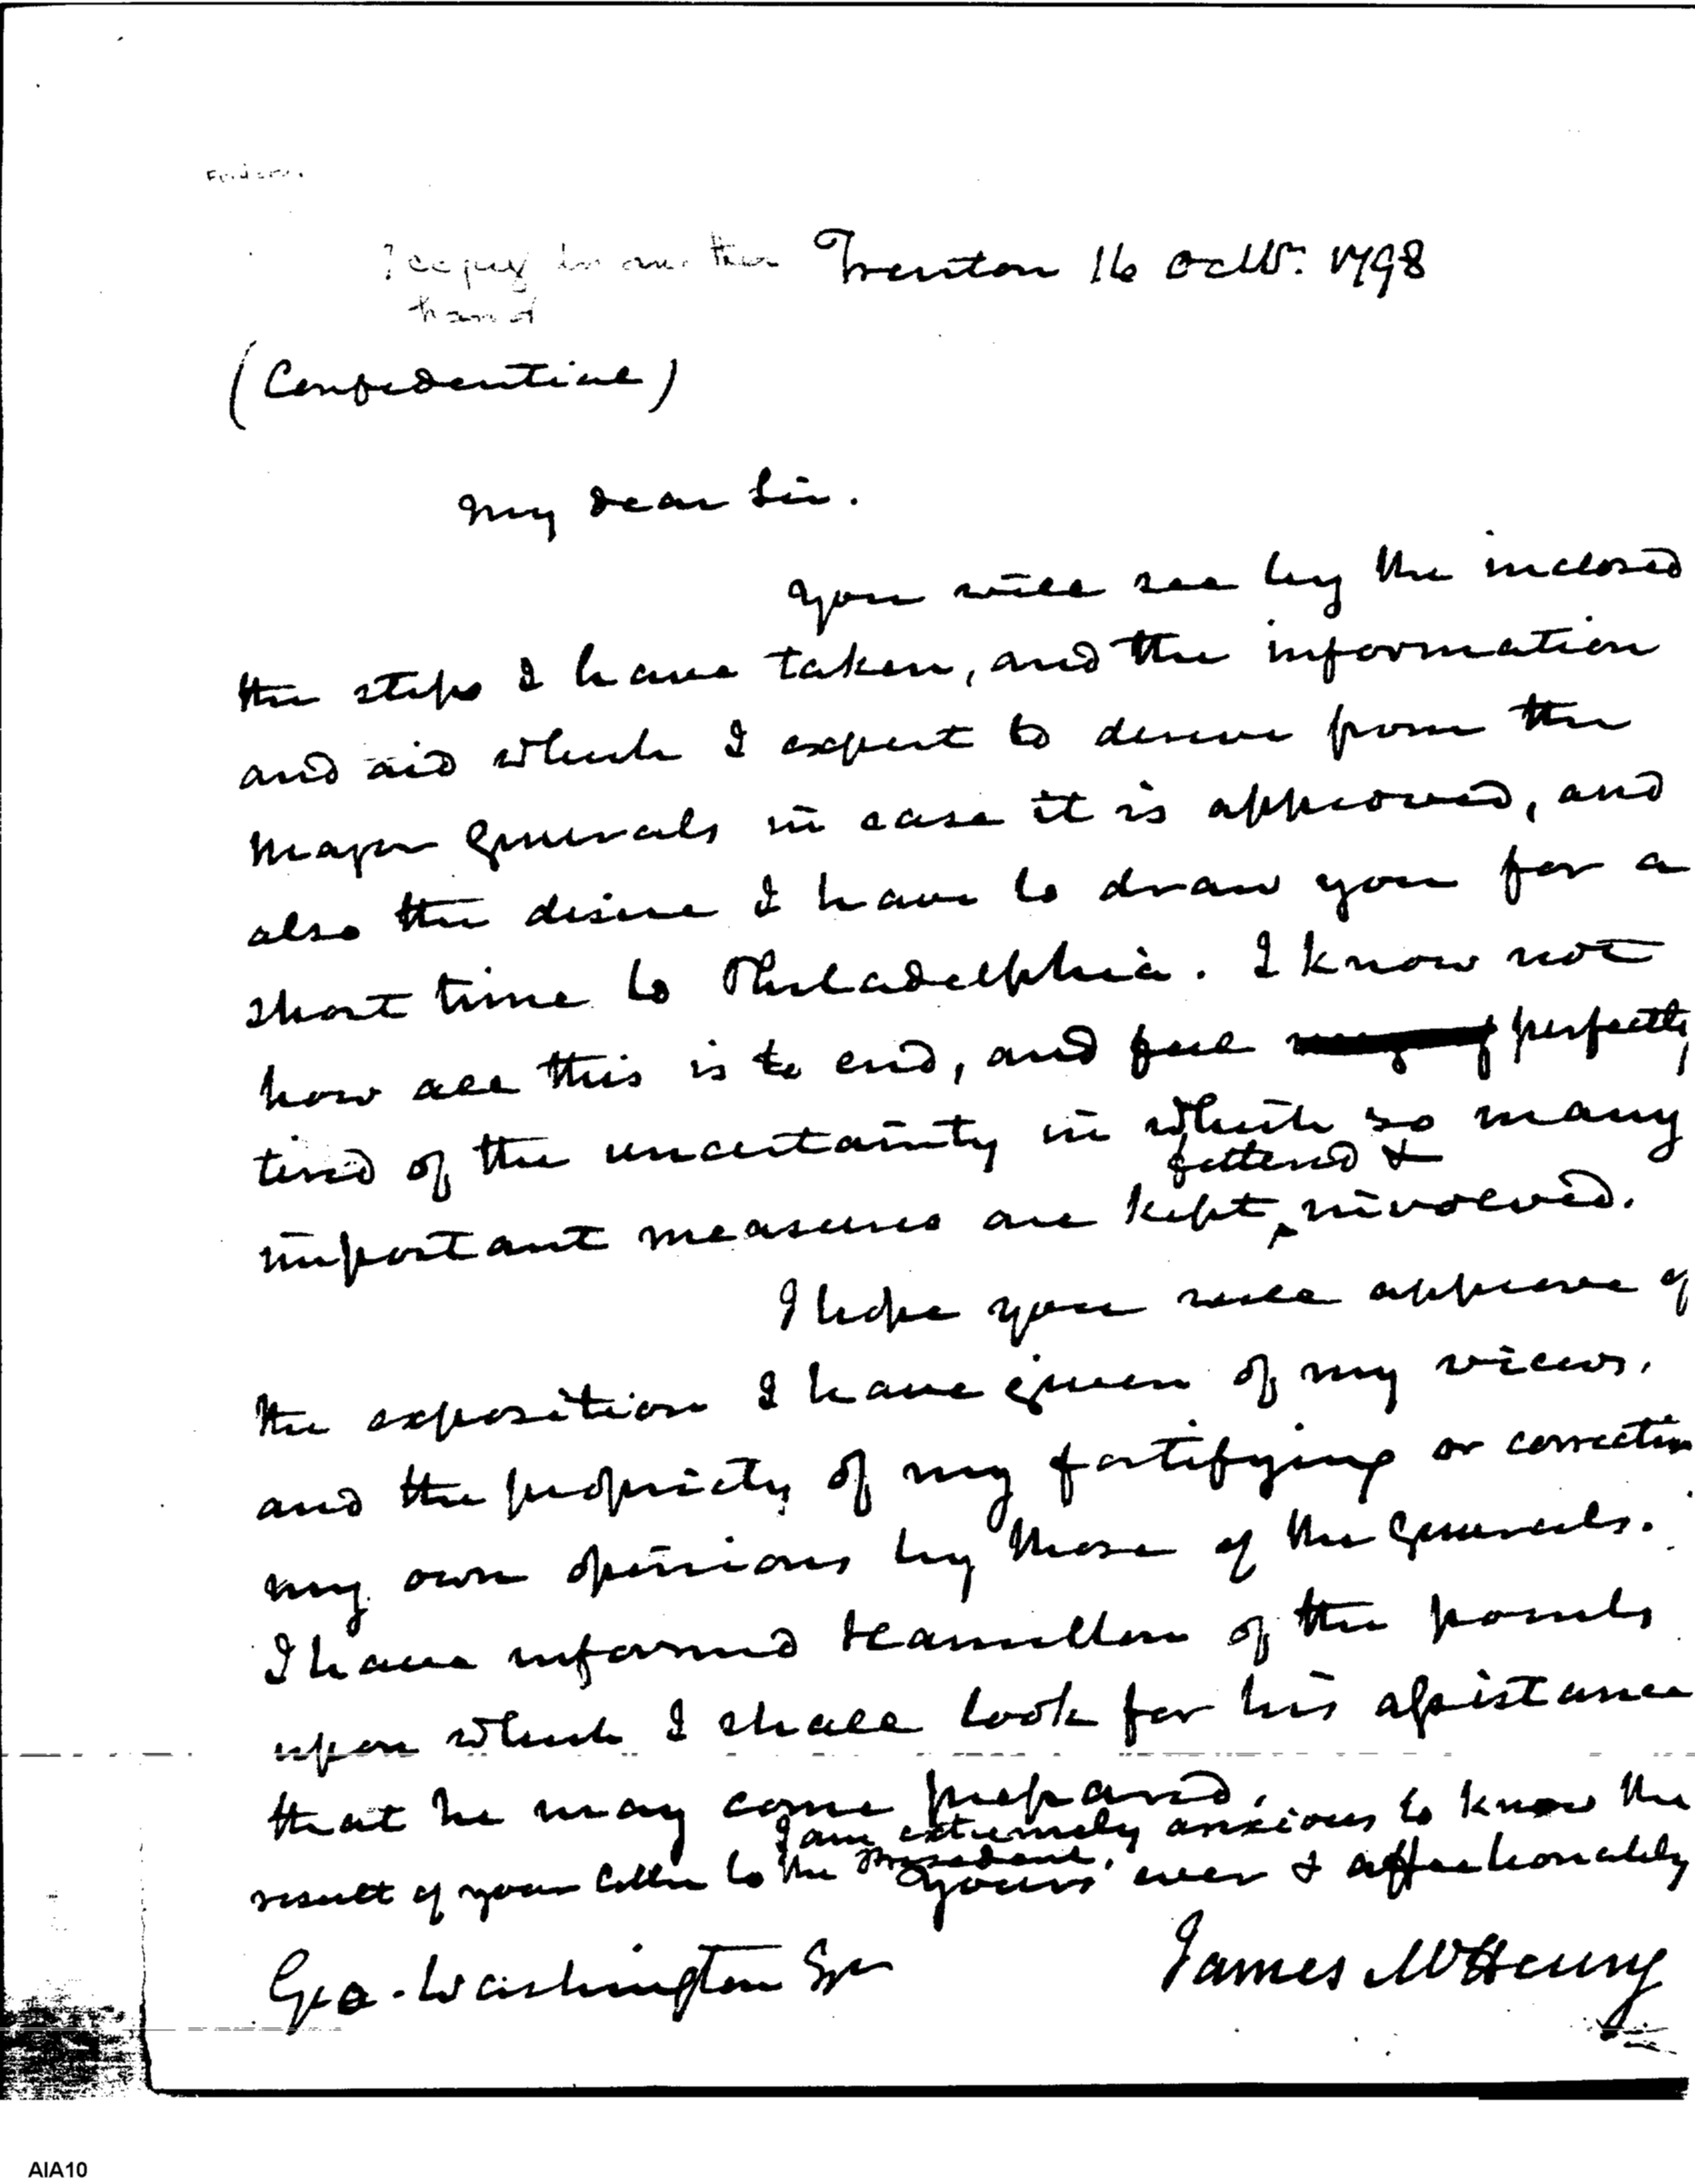 ? copy in another
hand
Trenton 16 Octbr. 1798
(Confidential)
My dear Sir.
You will see by the inclosed
the steps I have taken, and the information
and aid which I expect to derive from the
Major Generals in case it is approved, and
also the desire I have to draw you for a
short time to Philadelphia. I know not
how all this is to end, and feel perfectly
tired of the uncertainty in which so many
fettered &
important measures are kept ‸ involved.
I hope you will approve of
the exposition I have given of my views,
and the propriety of my fortifying or correcting
my own opinions by those of the Generals.
I have informed Hamilton of the points
upon which I shall look for his assistance
that he may come prepared.
I am extremely anxious to know the
result of your letter to the President.
Yours ever & affectionately
Geo. Washington Esqr
James McHenry
AIA10